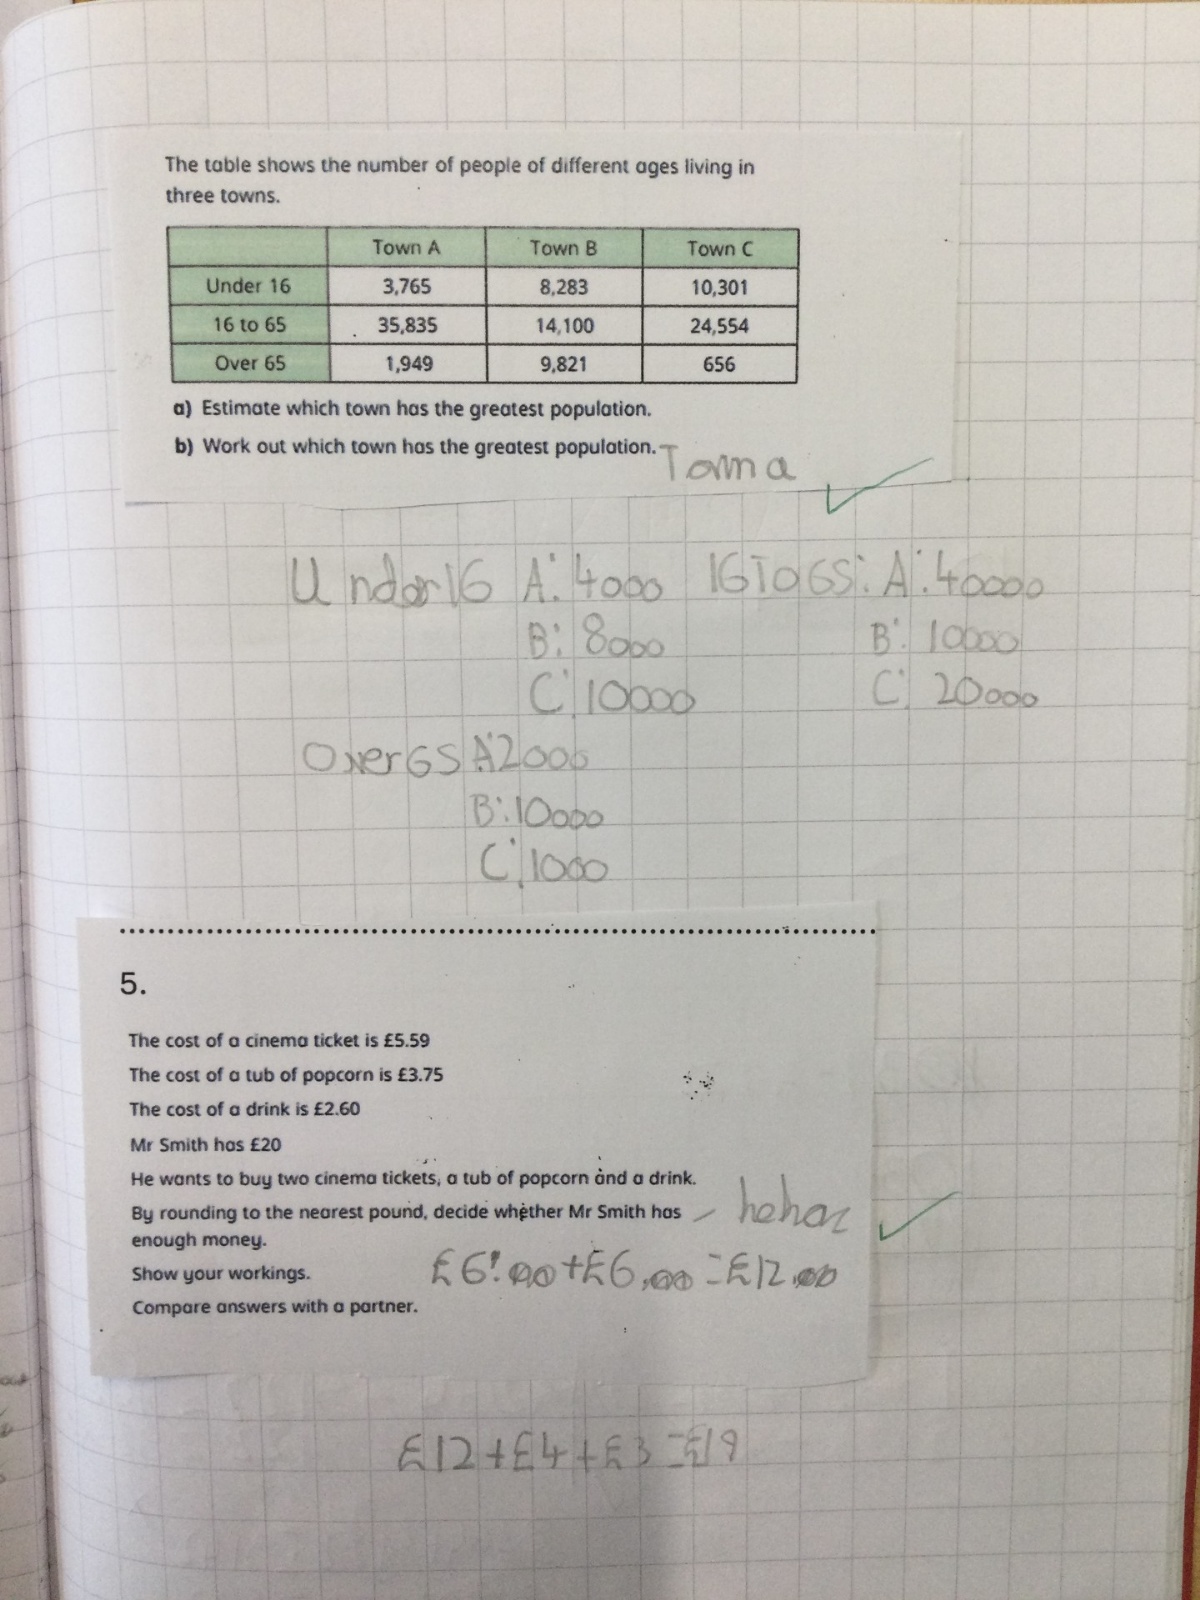 The table shows the number of people of different ages living in
three towns.
Town A Town B Town C
Under 16 3,765 8,283 10,301
16 to 65 35,835 14,100 24,554
Over 65 1,949 9,821 656
a) Estimate which town has the greatest population.
b) Work out which town has the greatest population.
Town a
Under 16 A: 4000 16 To 65: A: 40000
B: 8000 B: 10000
C: 10000 C: 20000
Over 65 A: 2000
B: 10000
C: 1000
5.
The cost of a cinema ticket is £5.59
The cost of a tub of popcorn is £3.75
The cost of a drink is £2.60
Mr Smith has £20
He wants to buy two cinema tickets, a tub of popcorn and a drink.
By rounding to the nearest pound, decide whether Mr Smith has – he has
enough money.
£6.00 + £6.00 = £12.00
Show your workings.
Compare answers with a partner.
£12 + £4 + £3 = £19